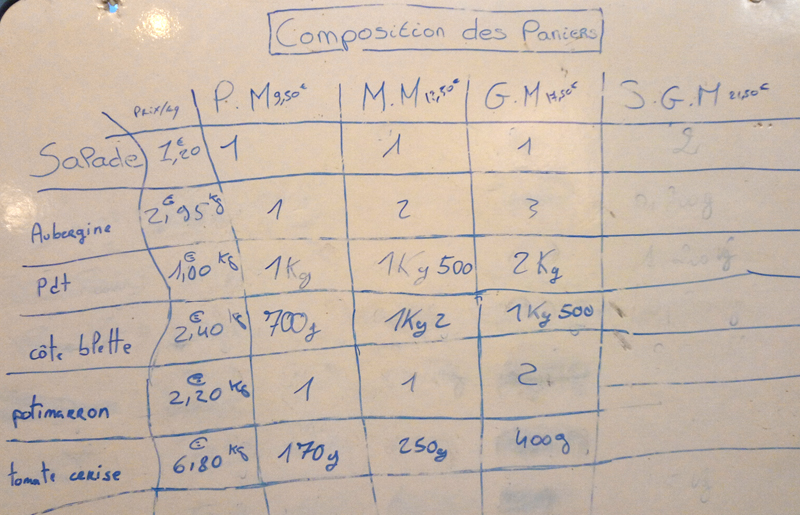 Composition des Paniers
Prix/kg P.M 9,50€ M.M 12,50€ G.M 17,50€ S.G.M 21,50€
Salade 1,20€ 1 1 1 2
Aubergine 2,95€ kg 1 2 3
Pdt 1,00€ kg 1Kg 1Kg 500 2Kg
côte blette 2,40€ kg 700g 1Kg 2 1Kg 500
potimarron 2,20€ kg 1 1 2
tomate cerise 6,80€ kg 170g 250g 400g